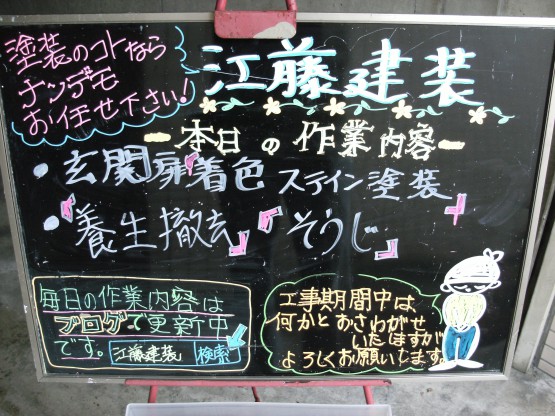 塗装のコトなら
ナンデモ
お任せ下さい!
江藤建装
本日の作業内容
・玄関扉着色 ステイン塗装
・『養生撤去』『そうじ』
毎日の作業内容は
ブログで更新中
です。 江藤建装 検索
工事期間中は
何かとおさわがせ
いたしますが
よろしくお願いします。